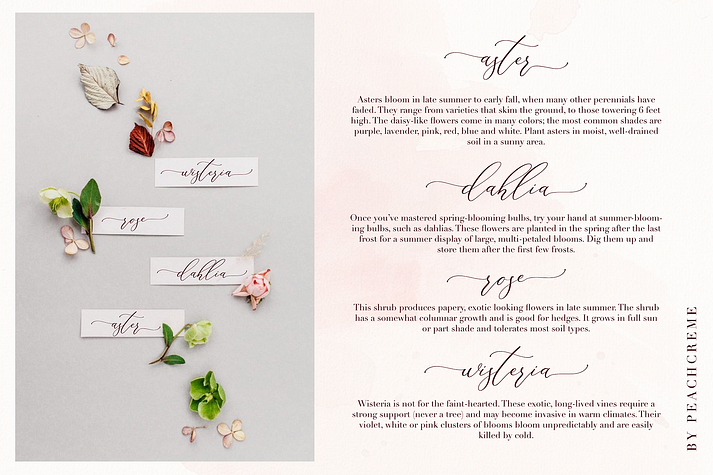 wisteria
rose
dahlia
aster
aster
Asters bloom in late summer to early fall, when many other perennials have
faded. They range from varieties that skim the ground, to those towering 6 feet
high. The daisy-like flowers come in many colors; the most common shades are
purple, lavender, pink, red, blue and white. Plant asters in moist, well-drained
soil in a sunny area.
dahlia
Once you've mastered spring-blooming bulbs, try your hand at summer-bloom-
ing bulbs, such as dahlias. These flowers are planted in the spring after the last
frost for a summer display of large, multi-petaled blooms. Dig them up and
store them after the first few frosts.
rose
This shrub produces papery, exotic looking flowers in late summer. The shrub
has a somewhat columnar growth and is good for hedges. It grows in full sun
or part shade and tolerates most soil types.
wisteria
Wisteria is not for the faint-hearted. These exotic, long-lived vines require a
strong support (never a tree) and may become invasive in warm climates. Their
violet, white or pink clusters of blooms bloom unpredictably and are easily
killed by cold.
BY PEACHCREME